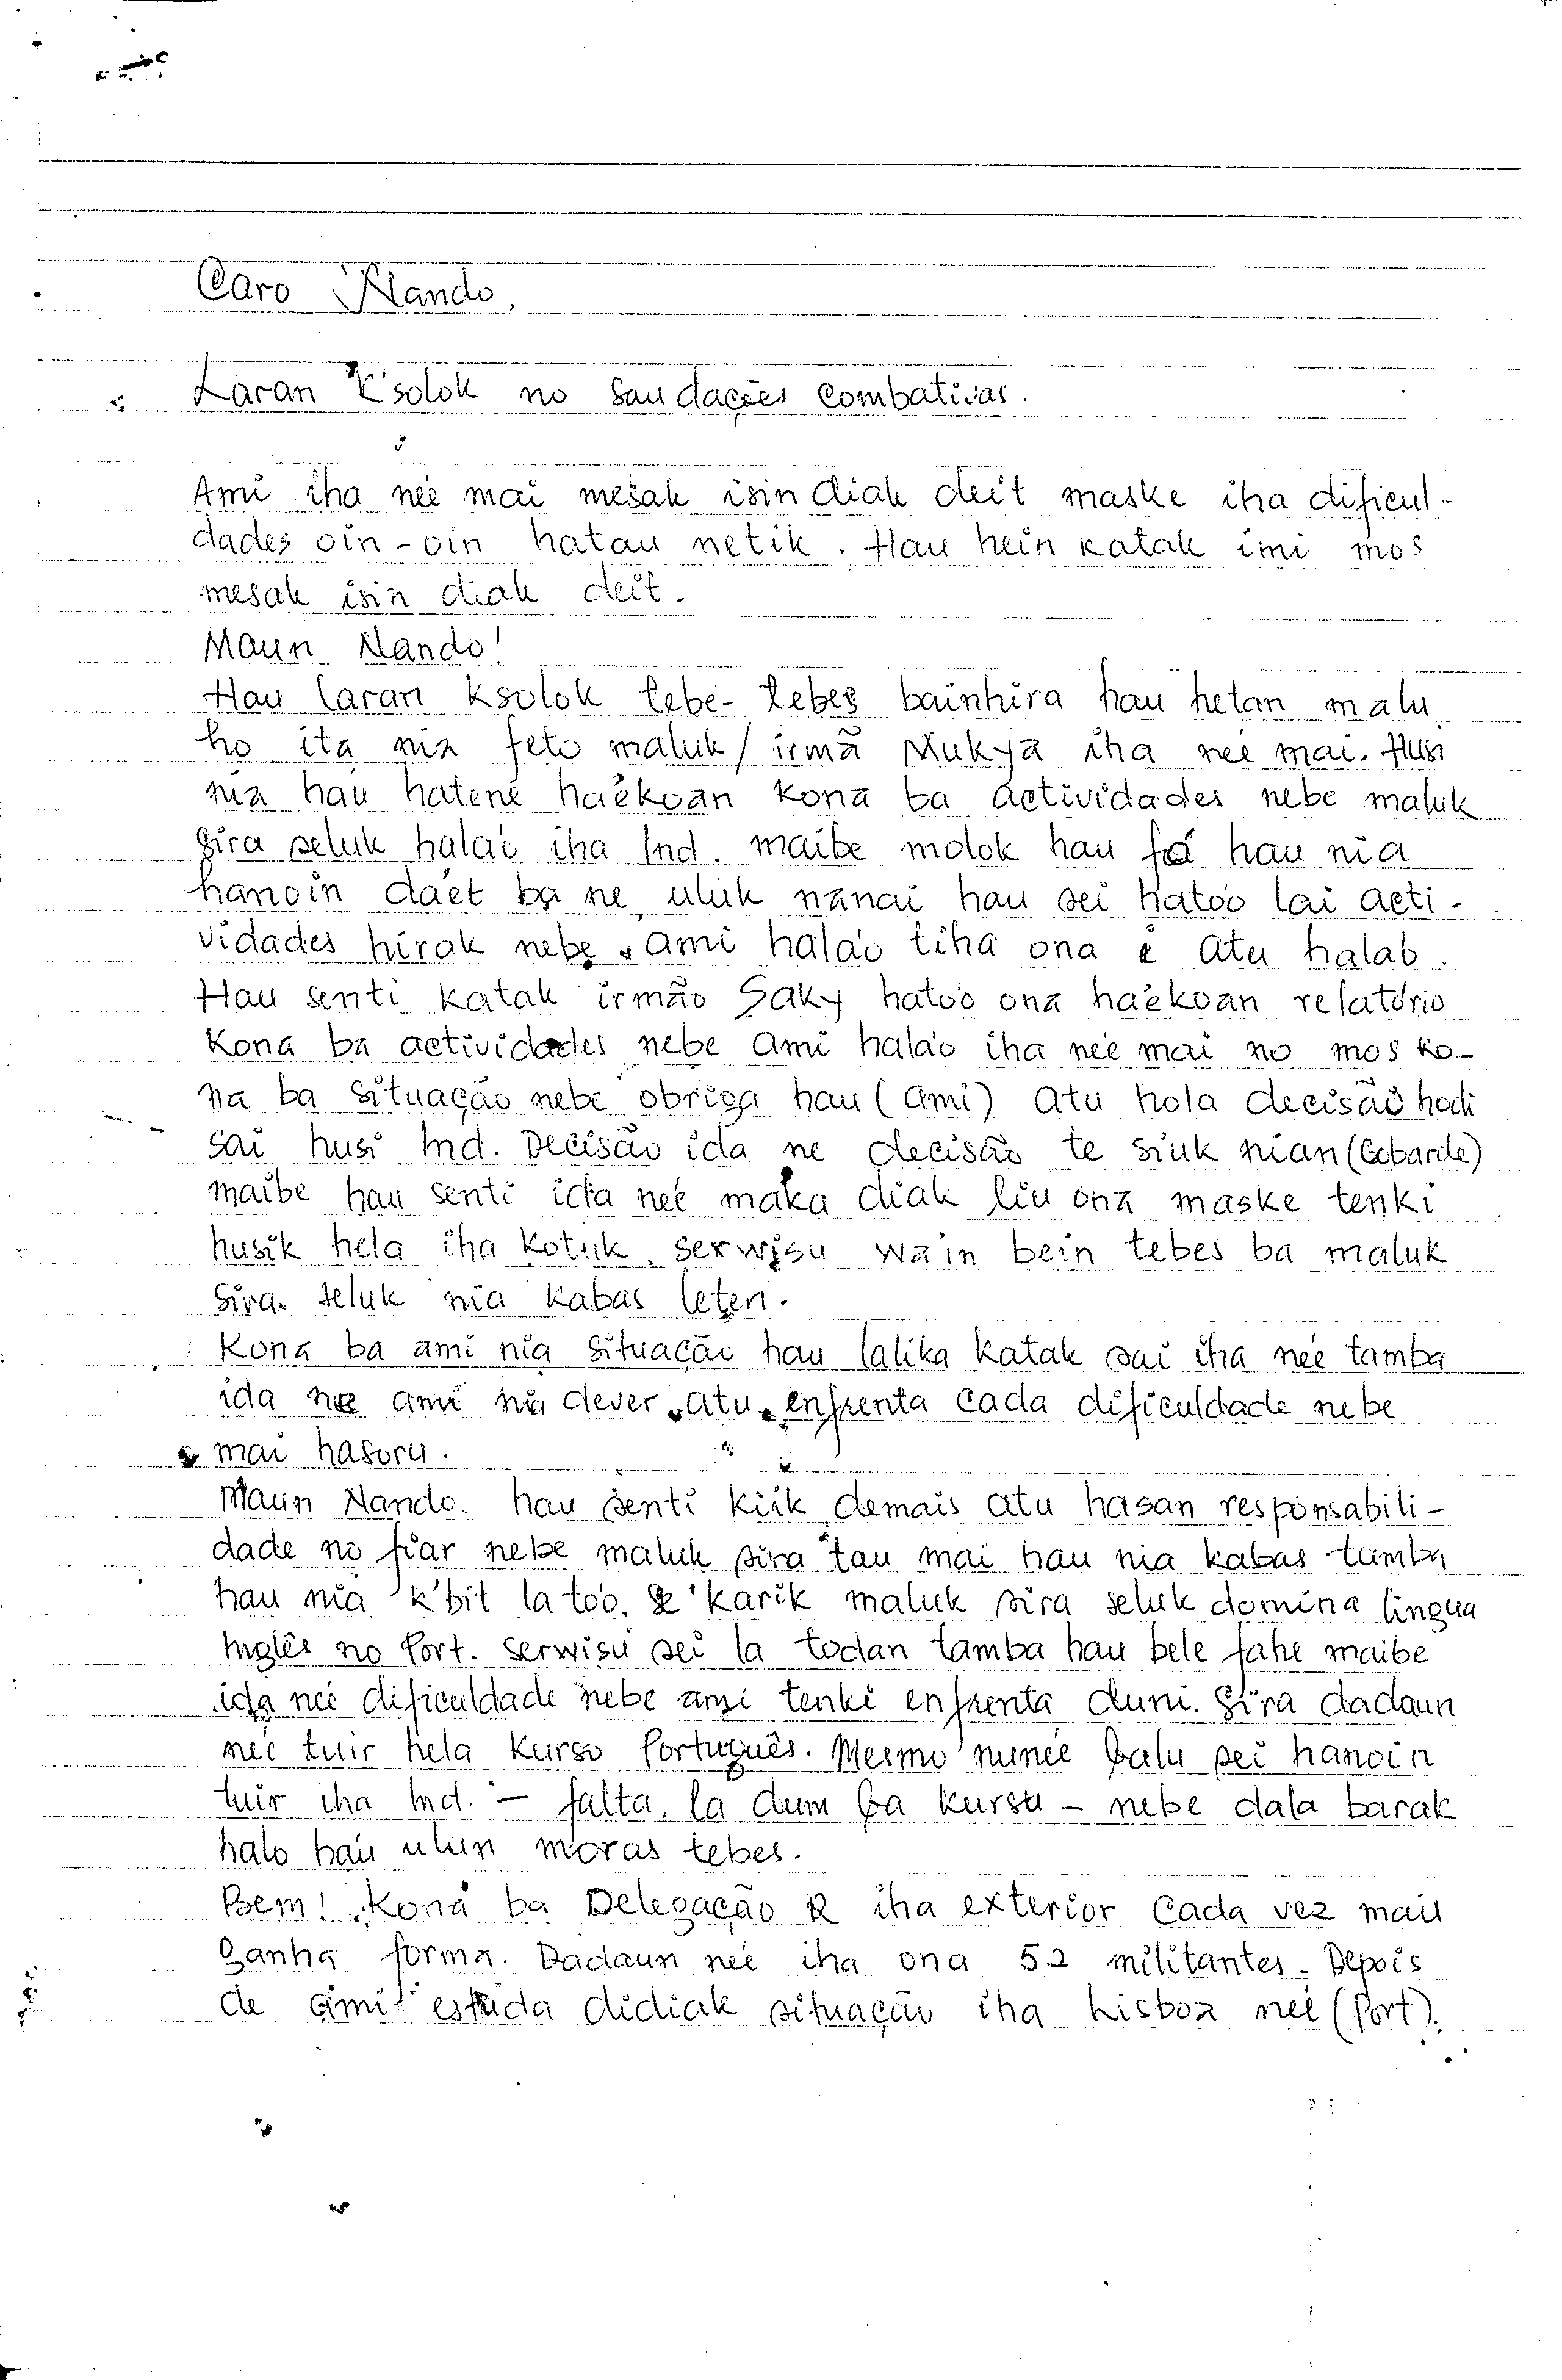 Caro Nando,
Laran K'solok no Saudações Combativas.
Ami iha neé mai mesak isin diak deit maske iha dificul-
dades oin-oin hatau netik. Hau hein katak imi mos
mesak isin diak deit.
Maun Nando!
Hau laran ksolok tebe-tebes bainhira hau hetan malu
ho ita nia feto maluk/irmã Mukya iha neé mai. Husi
nia hau hatene haékoan kona ba actividades nebe maluk
sira seluk halao iha Ind. maibe molok hau fó hau nia
hanoin daét ba ne, uluk nanai hau sei hato'o lai acti-
vidades hirak nebe ami hala'o tiha ona e atu halao.
Hau senti katak irmão Saky hato'o ona haékoan relatório
kona ba actividades nebe ami hala'o iha neé mai no mos ko-
na ba situação nebe obriga hau (ami) atu hola decisão hodi
sai husi Ind. Decisão ida ne decisão te siuk nian (Cobarde)
maibe hau senti ida neé maka diak liu ona maske tenki
husik hela iha kotuk, serwisu wain bein tebes ba maluk
sira seluk nia kabas leten.
Kona ba ami nia situação hau lalika katak sai iha neé tamba
ida ne ami nia dever atu enfrenta cada dificuldade nebe
mai hasoru.
Maun Nando. hau senti kiik demais atu hasan responsabili-
dade no fiar nebe maluk sira tau mai hau nia kabas tamba
hau nia k'bit la to'o. Se karik maluk sira seluk domina lingua
Inglês no Port. serwisu sei la todan tamba hau bele fahe maibe
ida neé dificuldade nebe ami tenki enfrenta duni. Sira dadaun
neé tuir hela kurso Português. Mesmo nuneé balu sei hanoin
tuir iha Ind. - falta, la dum ba kursu - nebe dala barak
halo hau ulun moras tebes.
Bem! Kona ba Delegação R iha exterior cada vez mais
ganha forma. Dadaun neé iha ona 52 militantes. Depois
de ami estuda didiak situação iha Lisboa neé (Port).